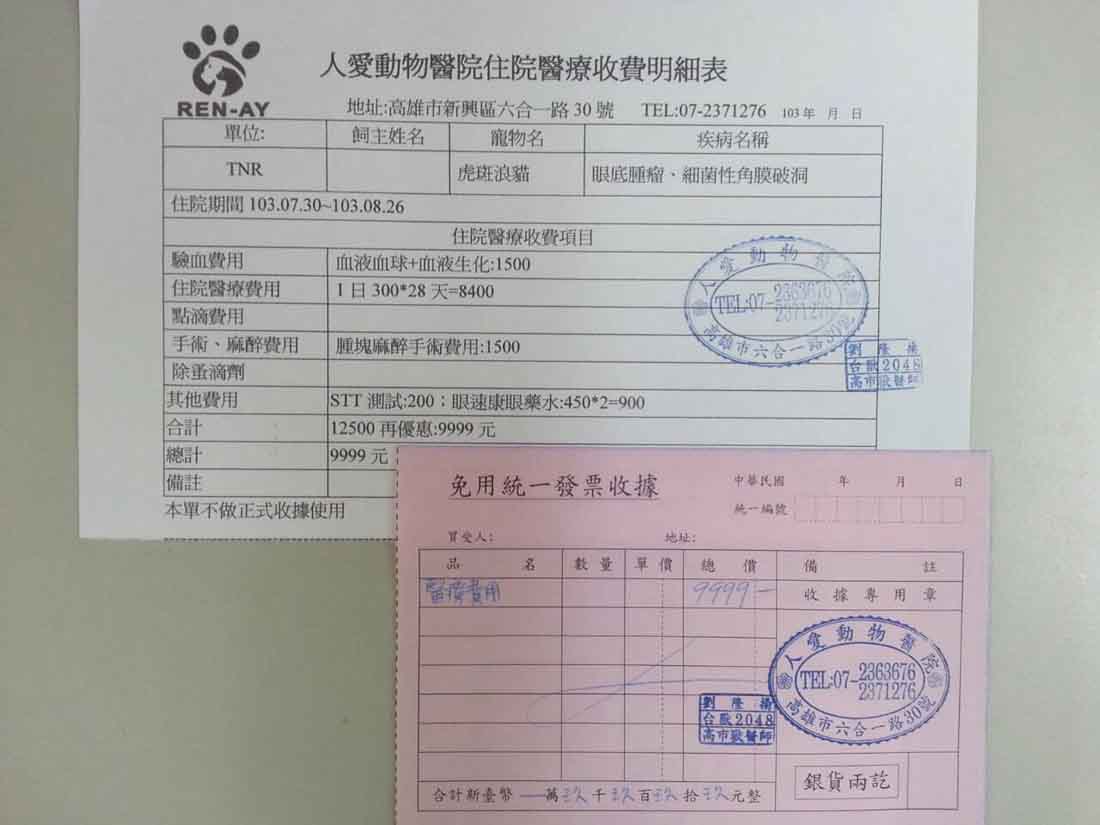 人愛動物醫院住院醫療收費明細表
REN-AY
地址:高雄市新興區六合一路 30 號 TEL:07-2371276 103 年 月 日
單位: 飼主姓名 寵物名 疾病名稱
TNR 虎斑浪貓 眼底腫瘤、細菌性角膜破洞
住院期間 103.07.30~103.08.26
住院醫療收費項目
驗血費用 血液血球+血液生化:1500
住院醫療費用 1 日 300*28 天=8400
點滴費用
手術、麻醉費用 腫塊麻醉手術費用:1500
除蚤滴劑
其他費用 STT 測試:200；眼速康眼藥水:450*2=900
合計 12500 再優惠:9999 元
總計 9999 元
備註
本單不做正式收據使用
人愛動物醫院
TEL:07-2363676
2371276
高雄市六合一路30號
劉隆揚
台獸2048
高市獸醫師
免用統一發票收據
中華民國 年 月 日
統一編號
買受人: 地址:
品名 數量 單價 總價 備註
醫療費用 9999- 收據專用章
人愛動物醫院
TEL:07-2363676
2371276
高雄市六合一路30號
劉隆揚
台獸2048
高市獸醫師
銀貨兩訖
合計新臺幣 萬玖千玖百玖拾玖元整